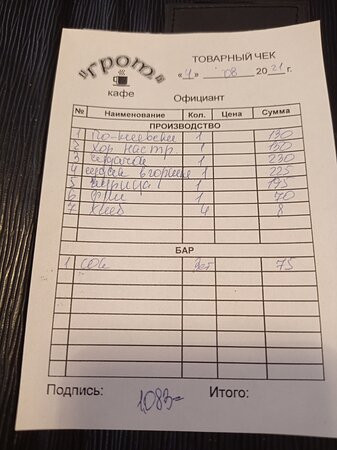 "ГРОТ"
кафе
ТОВАРНЫЙ ЧЕК
«4» 08 2021 г.
Официант
№ Наименование Кол. Цена Сумма
ПРОИЗВОДСТВО
1 По-киевски 1 130
2 Хор. настр. 1 150
3 1 230
4 в горшке 1 225
5 1 195
6 Фри 1 70
7 Хлеб 4 8
БАР
1 Сок 75
Подпись: 1083= Итого: